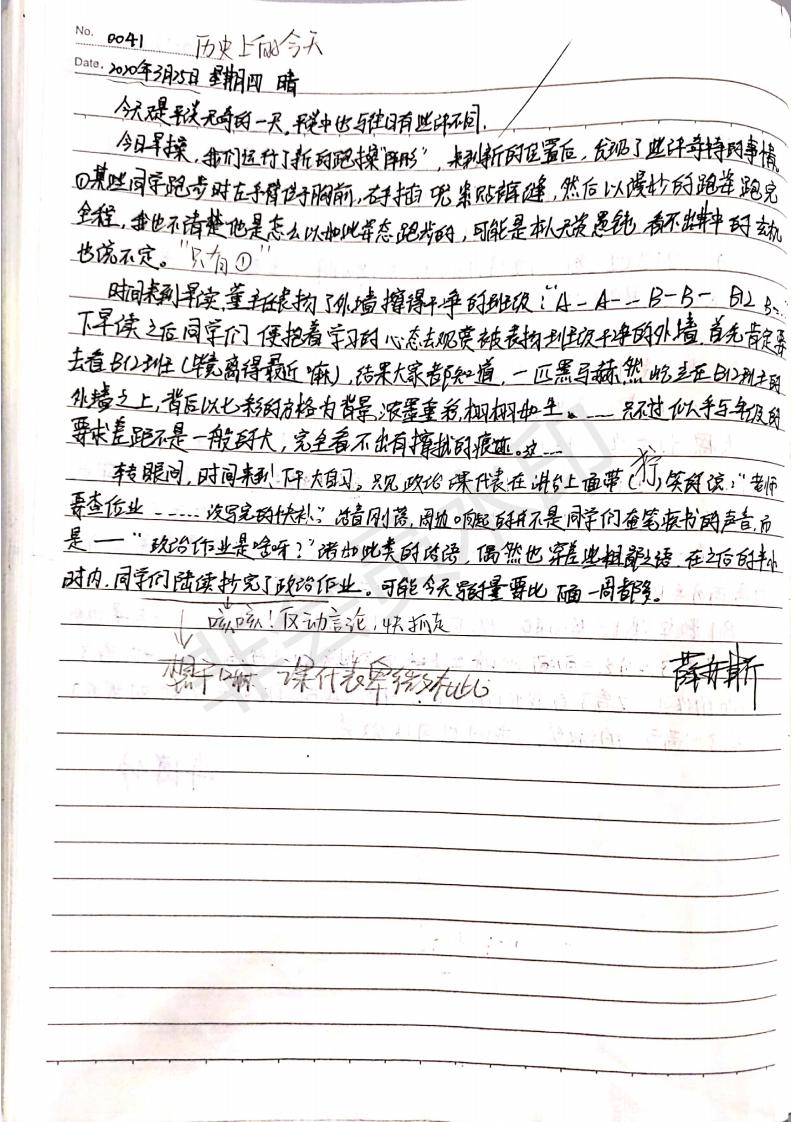 No. 0041 历史上的今天
Date. 2020年3月25日 星期四 晴
今天又是平淡无奇的一天,平淡中也与往日有些许不同.
今日早操,我们运行了新的跑操"阵形",来到新的位置后,发现了些许奇特的事情
①某些同学跑步时左手臂位于胸前,右手掐 呢 紧贴裤缝,然后以慢妙的跑姿跑完
全程,我也不清楚他是怎么以如此姿态跑步的,可能是本人天资愚钝,看不出其中的玄机
也说不定。"只有①"
时间来到早读,董主任表扬了外墙擦得干净的班级:"A-A--B-B- B12 B-..
下早读之后同学们 便抱着学习的心态去观赏被表扬班级干净的外墙,首先肯定要
去看B12班(毕竟离得最近嘛),结果大家都知道,一匹黑马赫然屹立在B12班的
外墙之上,背后以七彩的方格为背景,浓墨重彩,栩栩如生。……只不过似乎与年级的
要求差距不是一般的大,完全看不出有擦拭的痕迹。这……
转眼间,时间来到下午大自习。只见政治课代表在讲台上面带(狞)笑的说:"老师
要查作业……没写完的快补。"话音刚落,周边响起的并不是同学们奋笔疾书的声音,而
是——"政治作业是啥呀?"诸如此类的话语,偶然也穿差些粗鄙之语,在之后的半小
时内,同学们陆续抄完了政治作业。可能今天写的量要比 面一周都多。
咳咳!反动言论,快抓走
课代表
薛
非会员水印